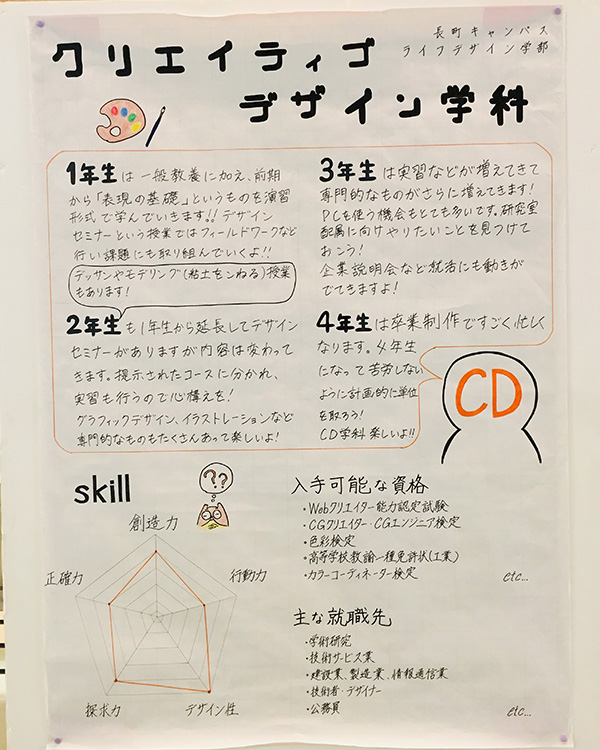 長町キャンパス
ライフデザイン学部
クリエイティブ
デザイン学科
1年生は一般教養に加え、前期
から「表現の基礎」というものを演習
形式で学んでいきます!! デザイン
セミナーという授業ではフィールドワークなど
行い課題にも取り組んでいくよ!!
デッサンやモデリング(粘土をこねる)授業
もあります!
2年生も1年生から延長してデザイン
セミナーがありますが内容は変わって
きます。提示されたコースに分かれ、
実習も行うので心構えを!
グラフィックデザイン、イラストレーションなど
専門的なものもたくさんあって楽しいよ!
3年生は実習などが増えてきて
専門的なものがさらに増えてきます!
PCを使う機会もとても多いです。研究室
配属に向けやりたいことを見つけて
おこう!
企業説明会など就活にも動きが
でてきますよ!
4年生は卒業制作ですごく忙しく
なります。4年生
になって苦労しない
ように計画的に単位
を取ろう!
CD学科楽しいよ!!
CD
skill
??
創造力
正確力
行動力
探求力
デザイン性
入手可能な資格
・Webクリエイター能力認定試験
・CGクリエイター・CGエンジニア検定
・色彩検定
・高等学校教諭一種免許状(工業)
・カラーコーディネーター検定
etc...
主な就職先
・学術研究
・技術サービス業
・建設業、製造業、情報通信業
・技術者・デザイナー
・公務員
etc...